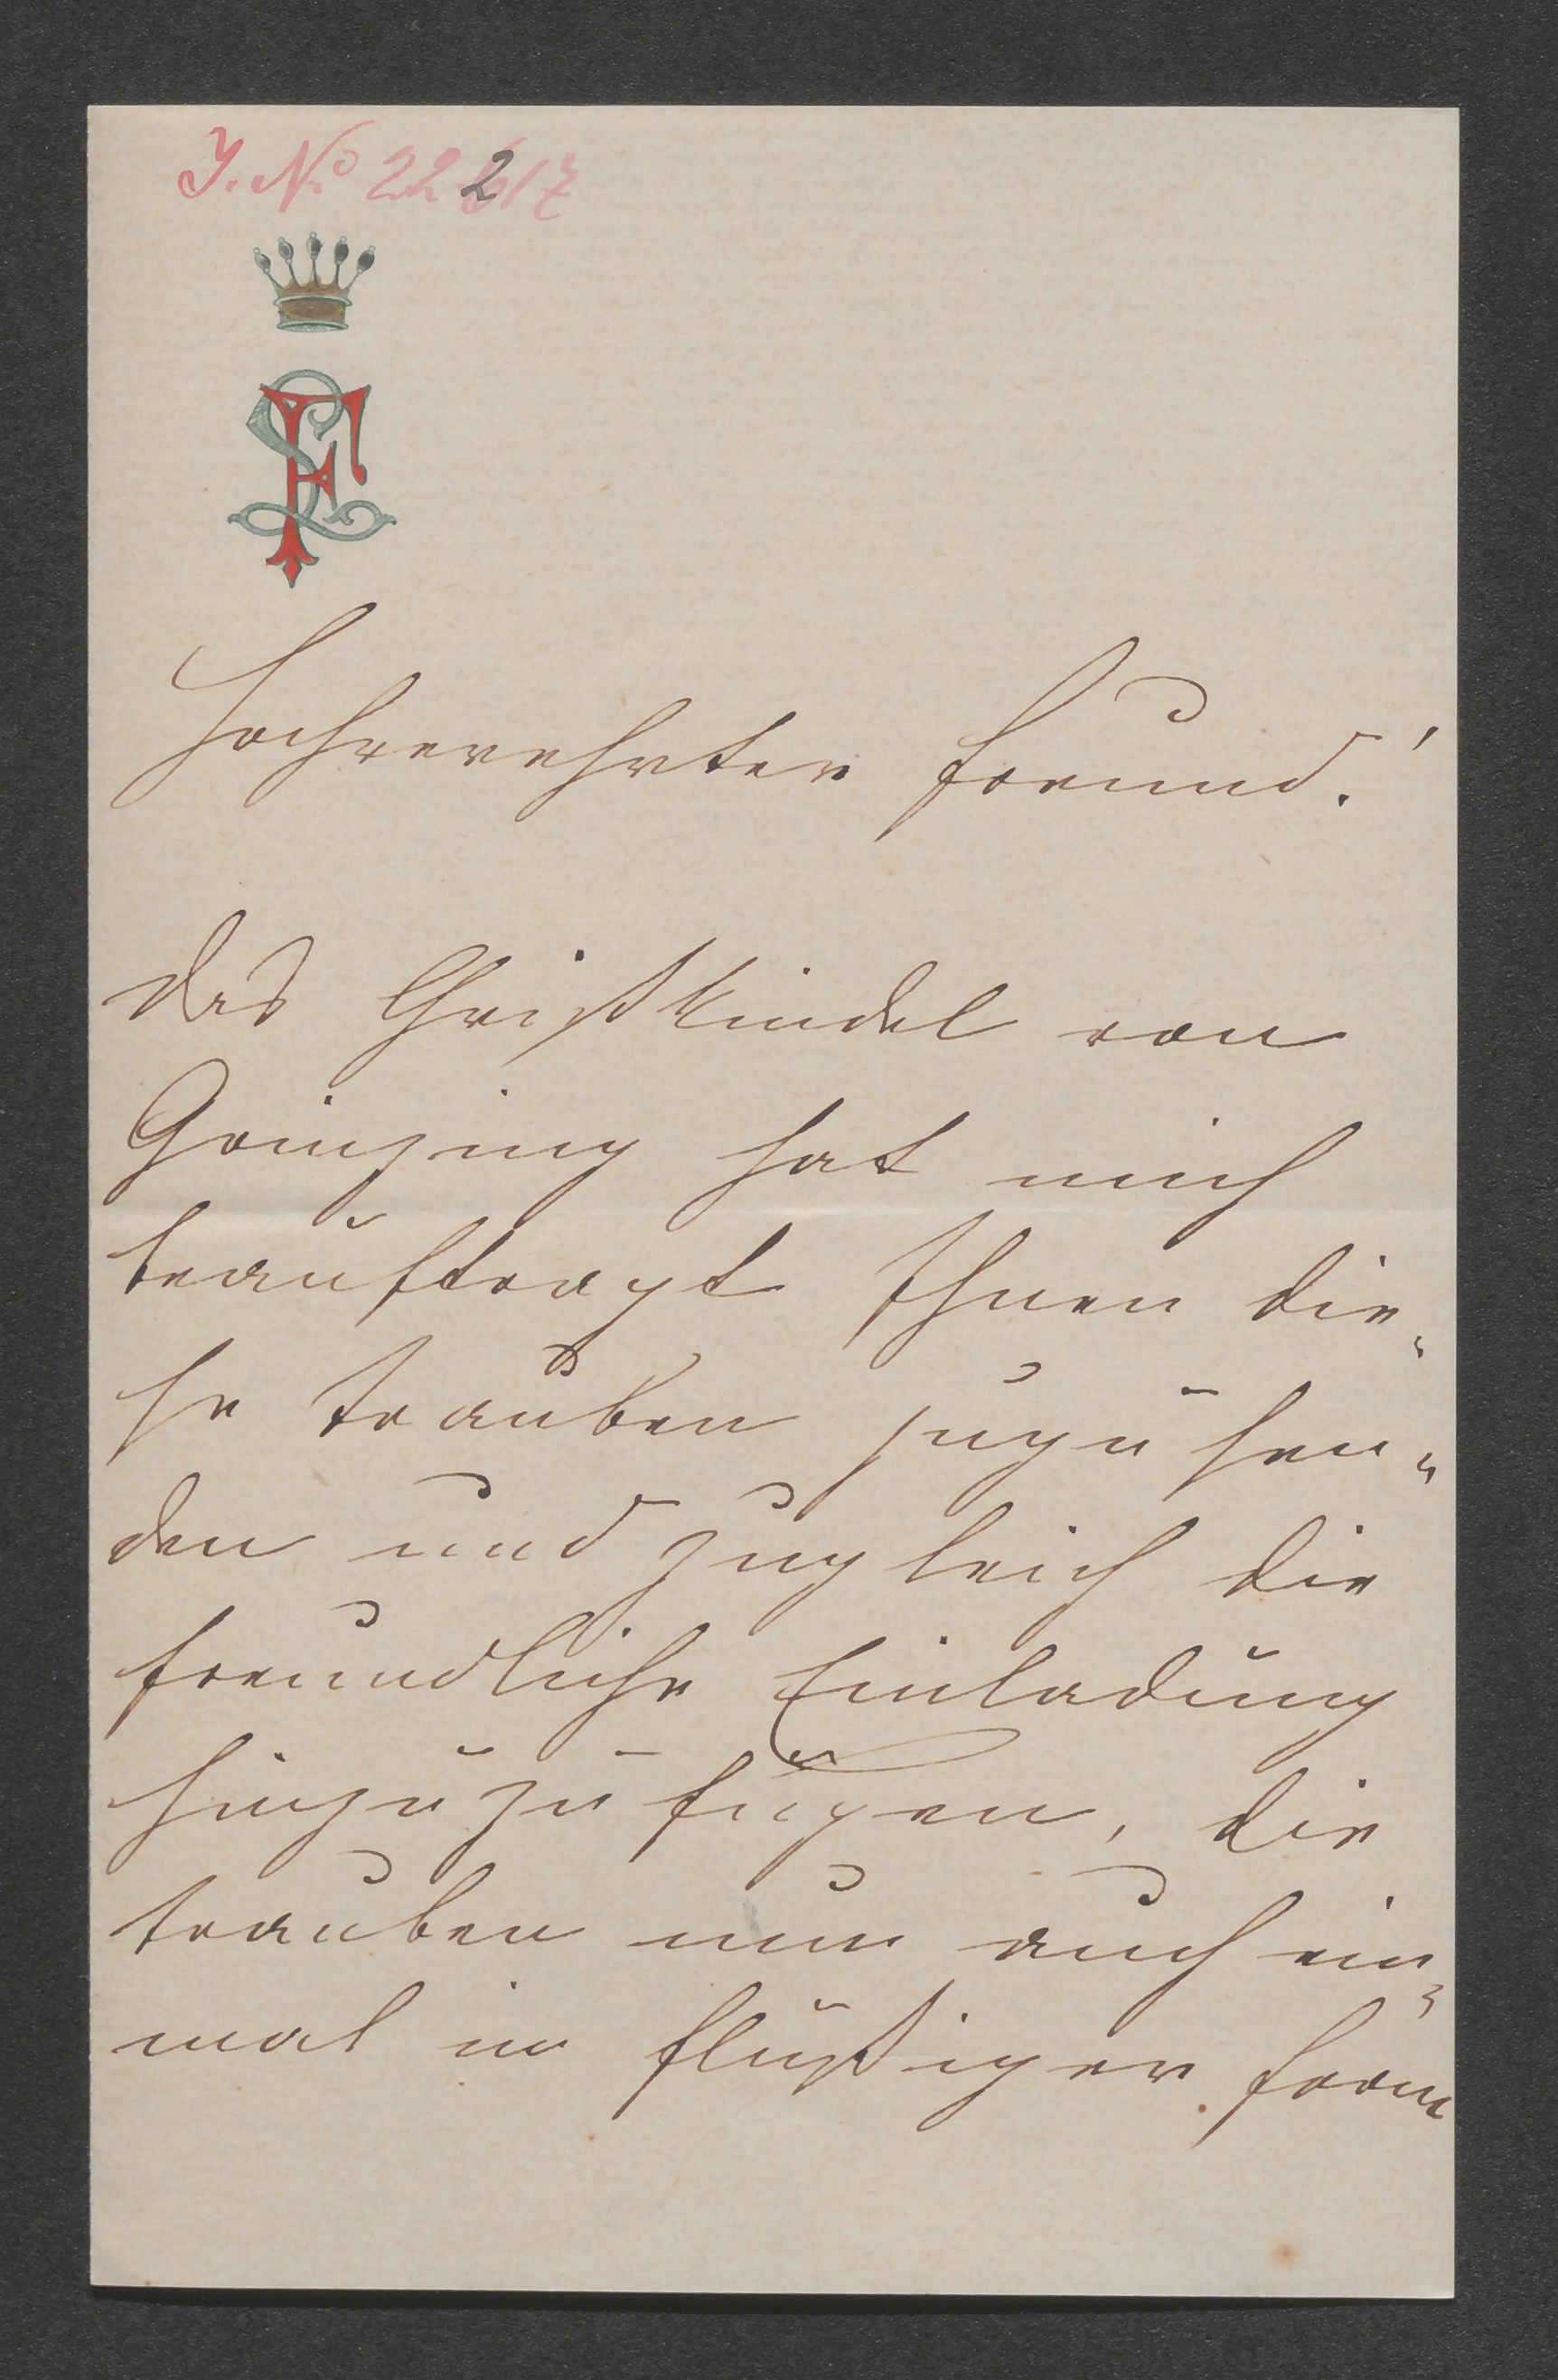 I. No 22217
LF
Hochverehrter Freund!
Das Christkindel von
Grinzing hat mich
beauftragt Ihnen die-
se Trauben zuzusen-
den und zugleich die
freundliche Einladung
hinzuzufügen, die
Trauben nun auch ein-
mal in flüßiger Form